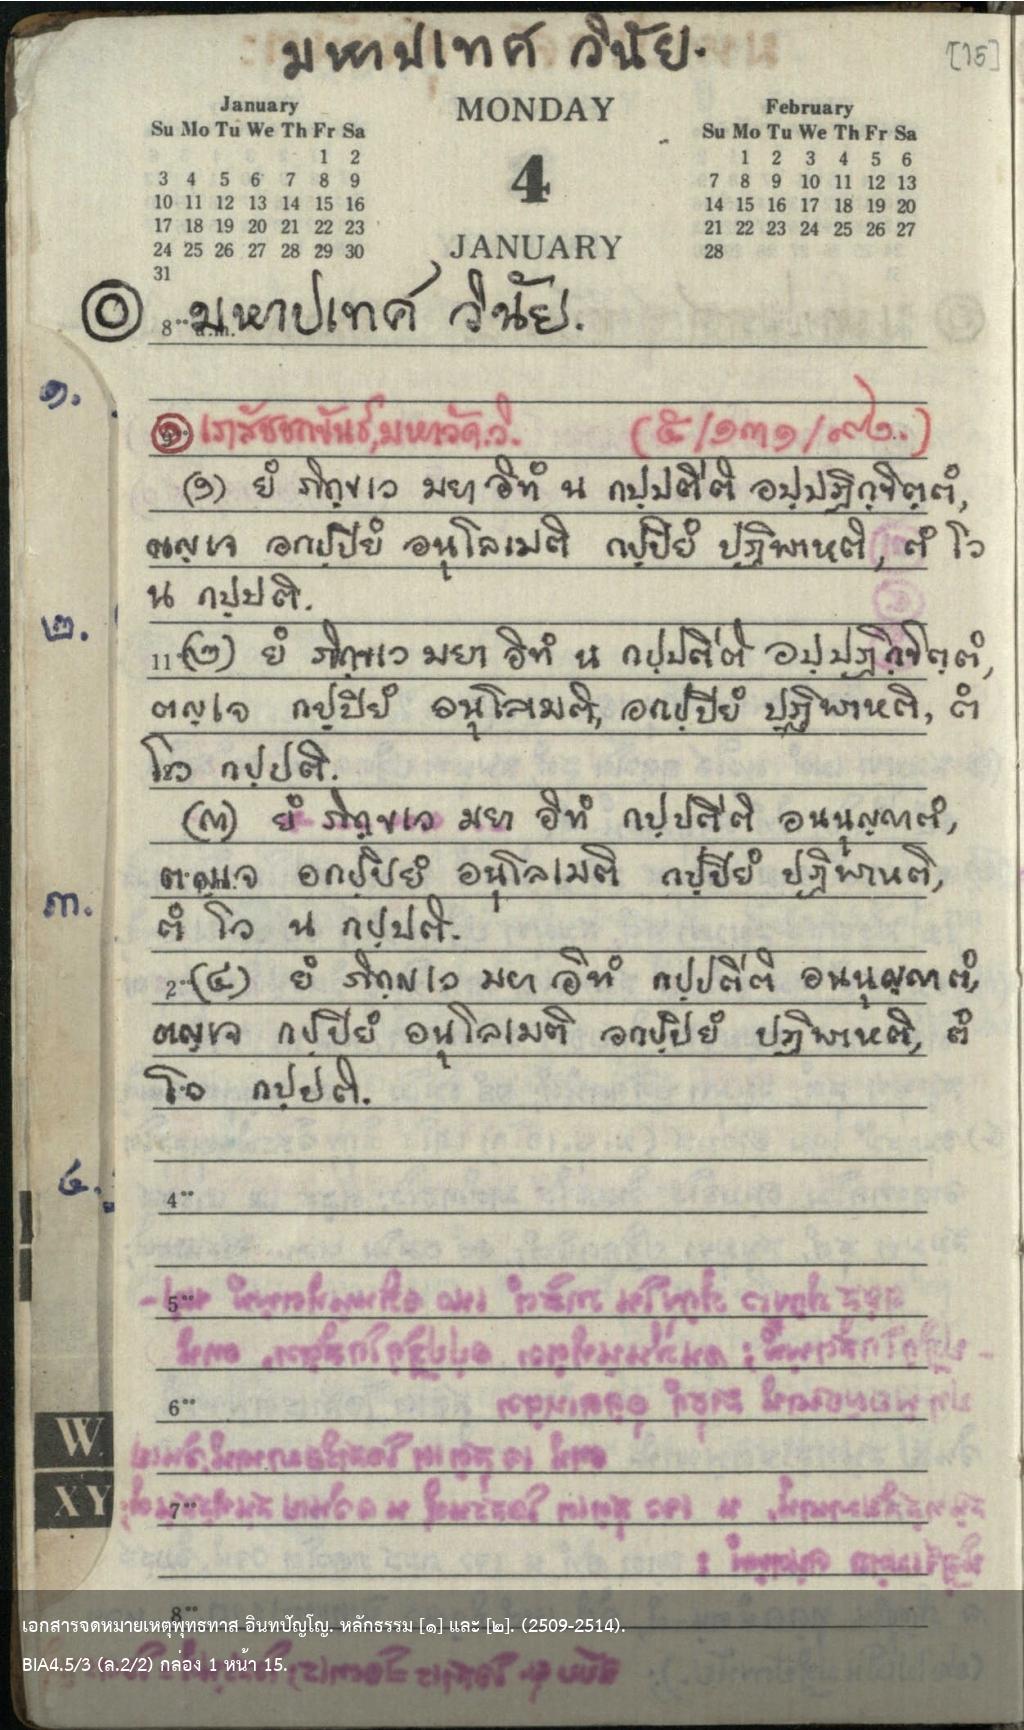 มหาปเทศ วินัย.
[15]
January
Su Mo Tu We Th Fr Sa
1 2
3 4 5 6 7 8 9
10 11 12 13 14 15 16
17 18 19 20 21 22 23
24 25 26 27 28 29 30
31
MONDAY
4
JANUARY
February
Su Mo Tu We Th Fr Sa
1 2 3 4 5 6
7 8 9 10 11 12 13
14 15 16 17 18 19 20
21 22 23 24 25 26 27
28
8 a.m. มหาปเทศ วินัย.
๑.
๑ เภสัชชกขันธ์, มหาวัค. วิ. (๕/๑๓๑/๙๒.)
(๑) ยํ ภิกฺขเว มยา อิทํ น กปฺปตีติ อปฺปฏิกฺขิตฺตํ,
ตญฺเจ อกปฺปิยํ อนุโลเมติ กปฺปิยํ ปฏิพาหติ, ตํ โว
น กปฺปติ.
๒.
11 (๒) ยํ ภิกฺขเว มยา อิทํ น กปฺปตีติ อปฺปฏิกฺขิตฺตํ,
ตญฺเจ กปฺปิยํ อนุโลเมติ, อกปฺปิยํ ปฏิพาหติ, ตํ
โว กปฺปติ.
(๓) ยํ ภิกฺขเว มยา อิทํ กปฺปตีติ อนนุญฺาตํ,
ตญฺเจ อกปฺปิยํ อนุโลเมติ กปฺปิยํ ปฏิพาหติ,
๓.
ตํ โว น กปฺปติ.
2 (๔) ยํ ภิกฺขเว มยา อิทํ กปฺปตีติ อนนุญฺาตํ,
ตญฺเจ กปฺปิยํ อนุโลเมติ อกปฺปิยํ ปฏิพาหติ, ตํ
โว กปฺปติ.
๔.
4
5
6
W
7
XY
8
เอกสารจดหมายเหตุพุทธทาส อินทปัญโญ. หลักธรรม [๑] และ [๒]. (2509-2514).
BIA4.5/3 (ล.2/2) กล่อง 1 หน้า 15.